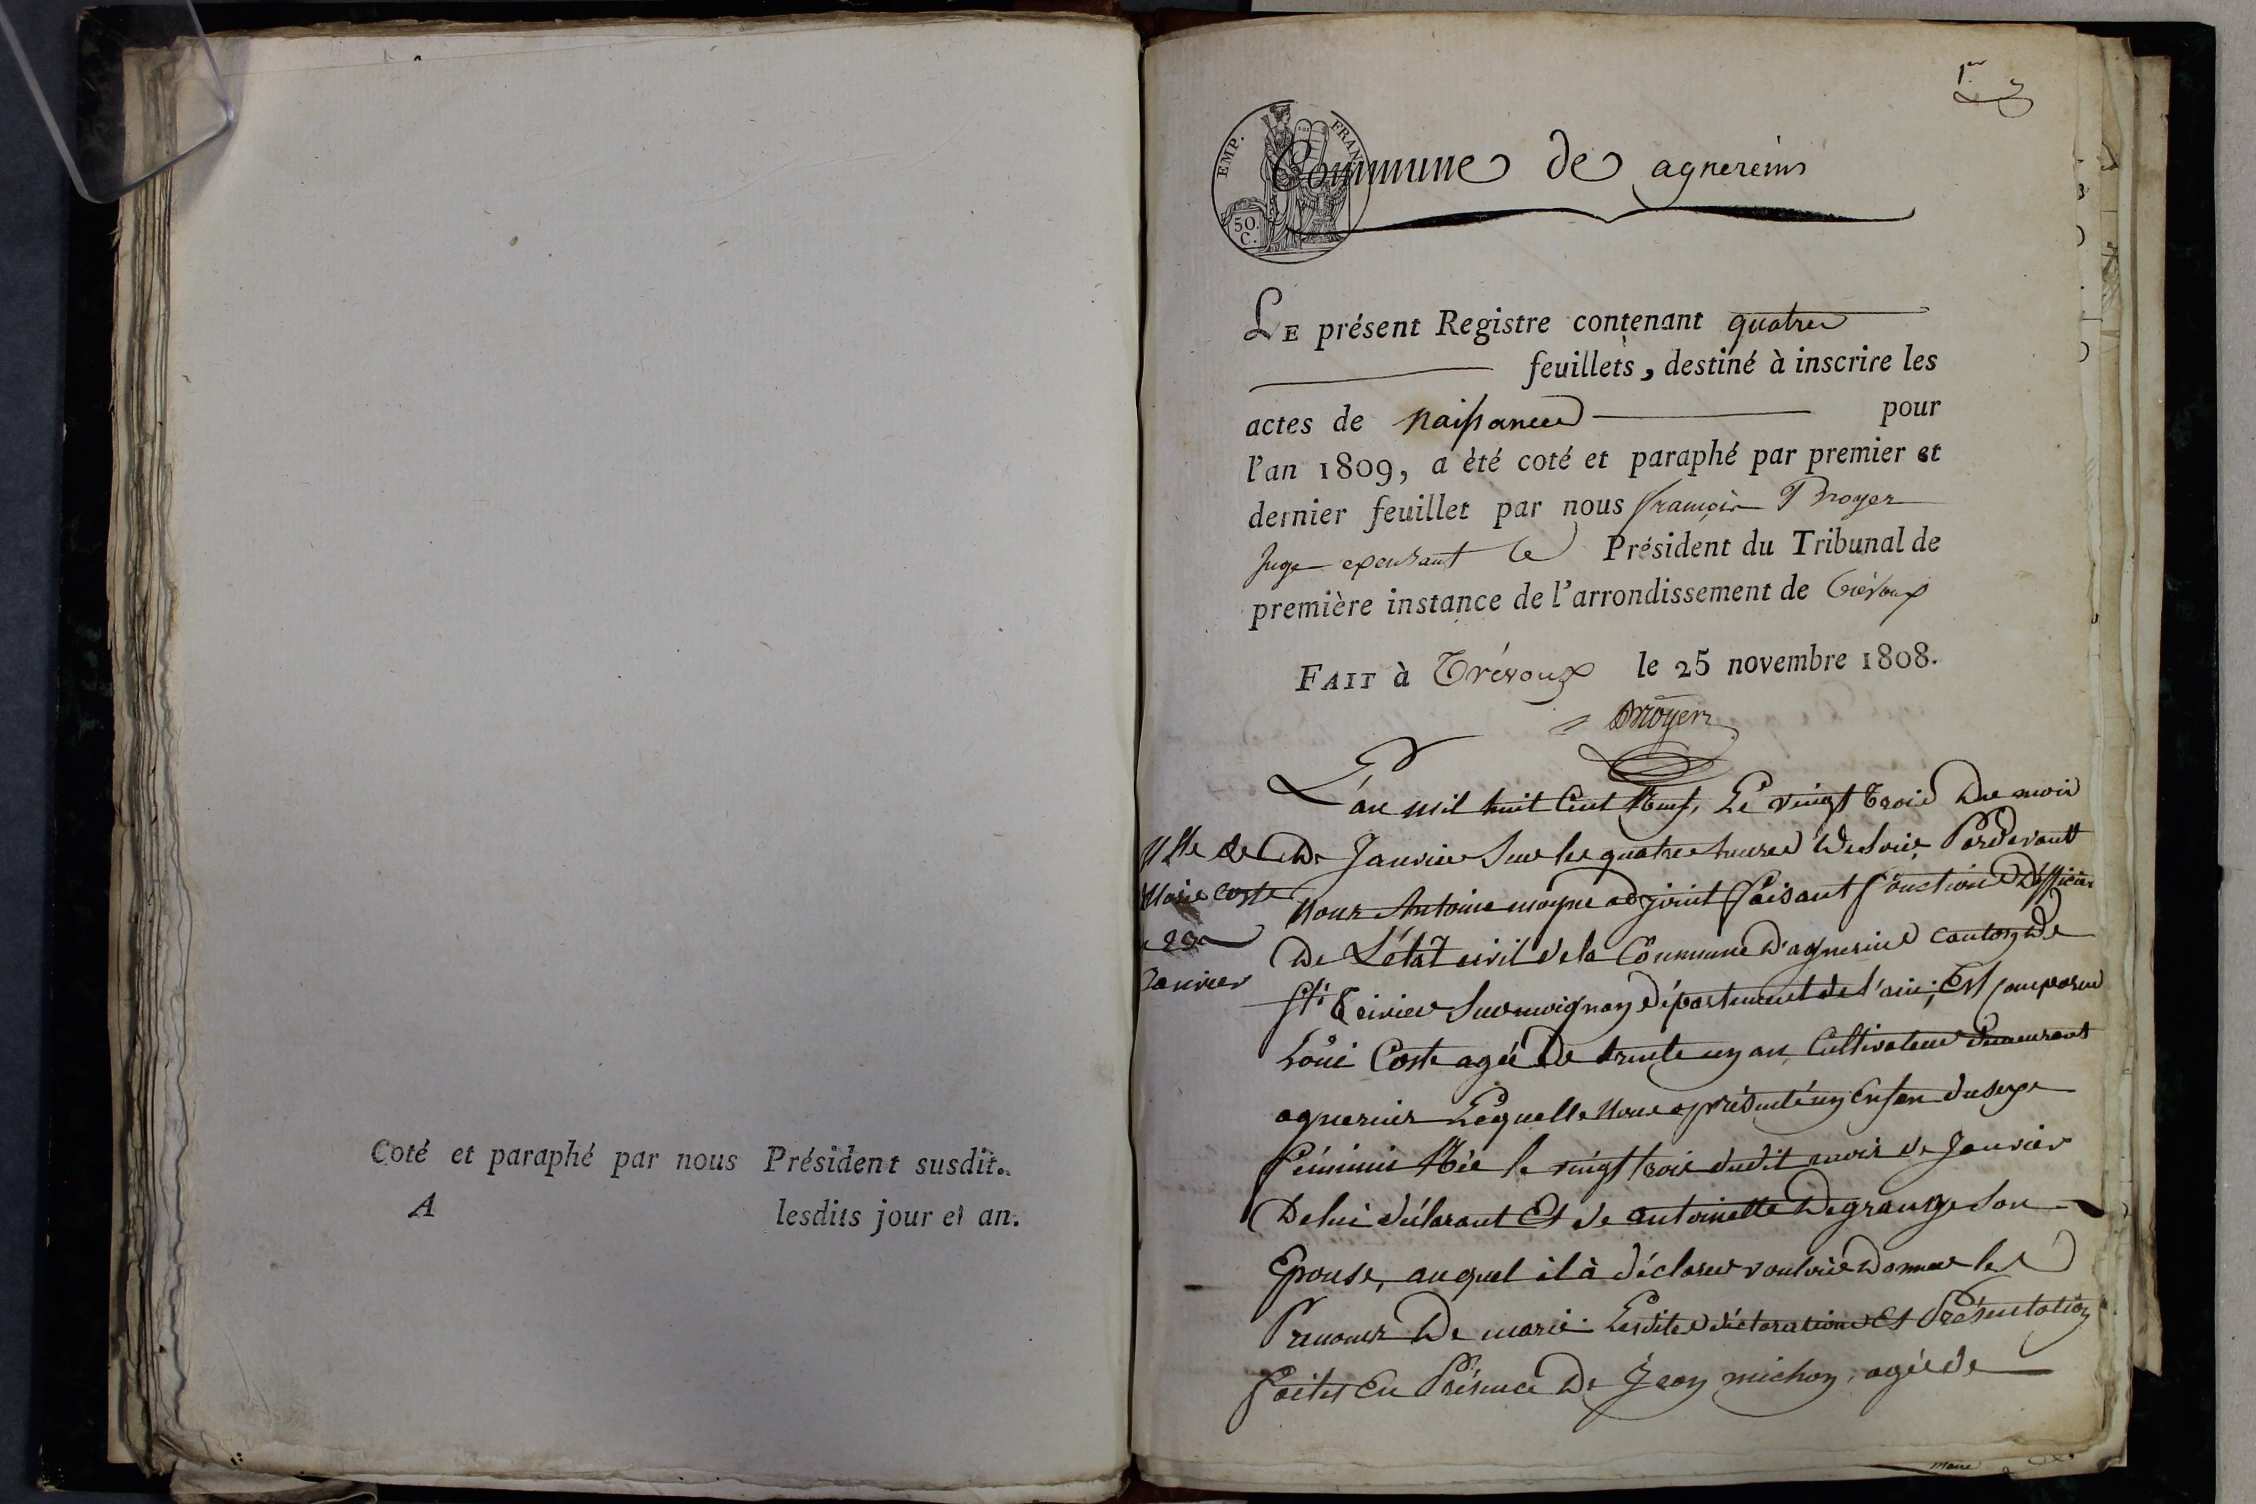 Coté et paraphé par nous Président susdit.
A lesdits jour et an.
1er
EMP. FRAN
50.
C.
Commune de agnereins
LE présent Registre contenant quatre
feuillets, destiné à inscrire les
actes de Naissance pour
l'an 1809, a été coté et paraphé par premier et
dernier feuillet par nous françois Proyer
Juge exerçant le Président du Tribunal de
première instance de l'arrondissement de Trévoux
FAIT à Trévoux le 25 novembre 1808.
L'an mil huit Cent Neuf, Le vingt trois Du mois
De Janvier Sur les quatre heures De Soir, Pardevant
Nous Antoine moyne adjoint faisant fonction D'officier
De L'état civil de la Commune D'agnereins canton De
St Trivier Sur moignan Département de l'ain; Est comparu
Loüi Coste agée De trente un an Cultivateur demeurant
agnereins Lequelle Nous a présenté un Enfan du sexe
féminin Née le vingt trois dudit mois de Janvier
De lui déclarant Et de antoinette Degrange Son
Epouse, auquel il à déclarer vouloir Donner les
Prenoms De marie Lesdites déclarations Et Présentation
faites En Présence De Jean michon, agée de
Nce de
Marie Coste
23
Janvier